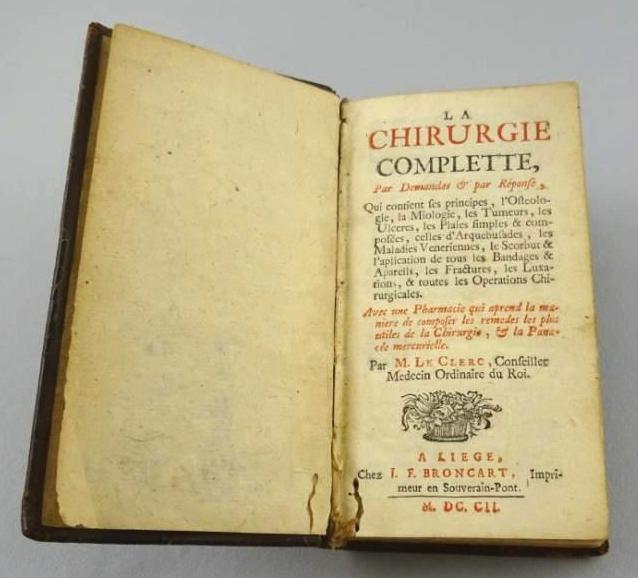 LA
CHIRURGIE
COMPLETTE,
Par Demandes & par Réponse,
Qui contient ses principes, l'Osteolo-
gie, la Miologie, les Tumeurs, les
Ulceres, les Plaies simples & com-
posées, celles d'Arquebusades, les
Maladies Veneriennes, le Scorbut &
l'aplication de tous les Bandages &
Apareils, les Fractures, les Luxa-
tions, & toutes les Operations Chi-
rurgicales.
Avec une Pharmacie qui aprend la ma-
niere de composer les remedes les plus
utiles de la Chirurgie, & la Pana-
cée mercurielle.
Par M. LE CLERC, Conseiller
Medecin Ordinaire du Roi.
A LIEGE,
Chez J. F. BRONCART, Impri-
meur en Souverain-Pont.
M. DC. CII.